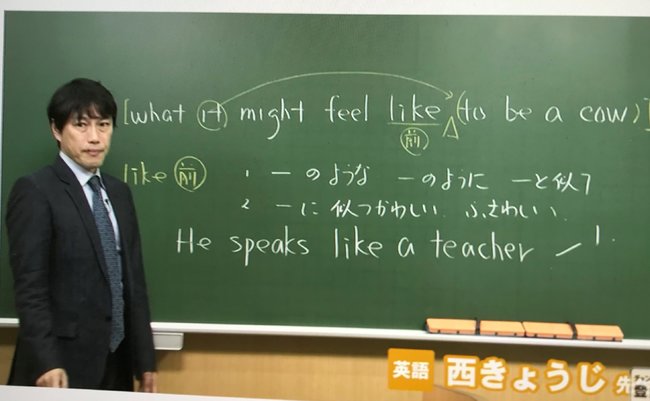 [what it might feel like (to be a cow)]
前 Δ
like 前 1 ーのような ーのように ーと似て
2 ーに似つかわしい ふさわしい
He speaks like a teacher ー 1.
英語 西きょうじ 先